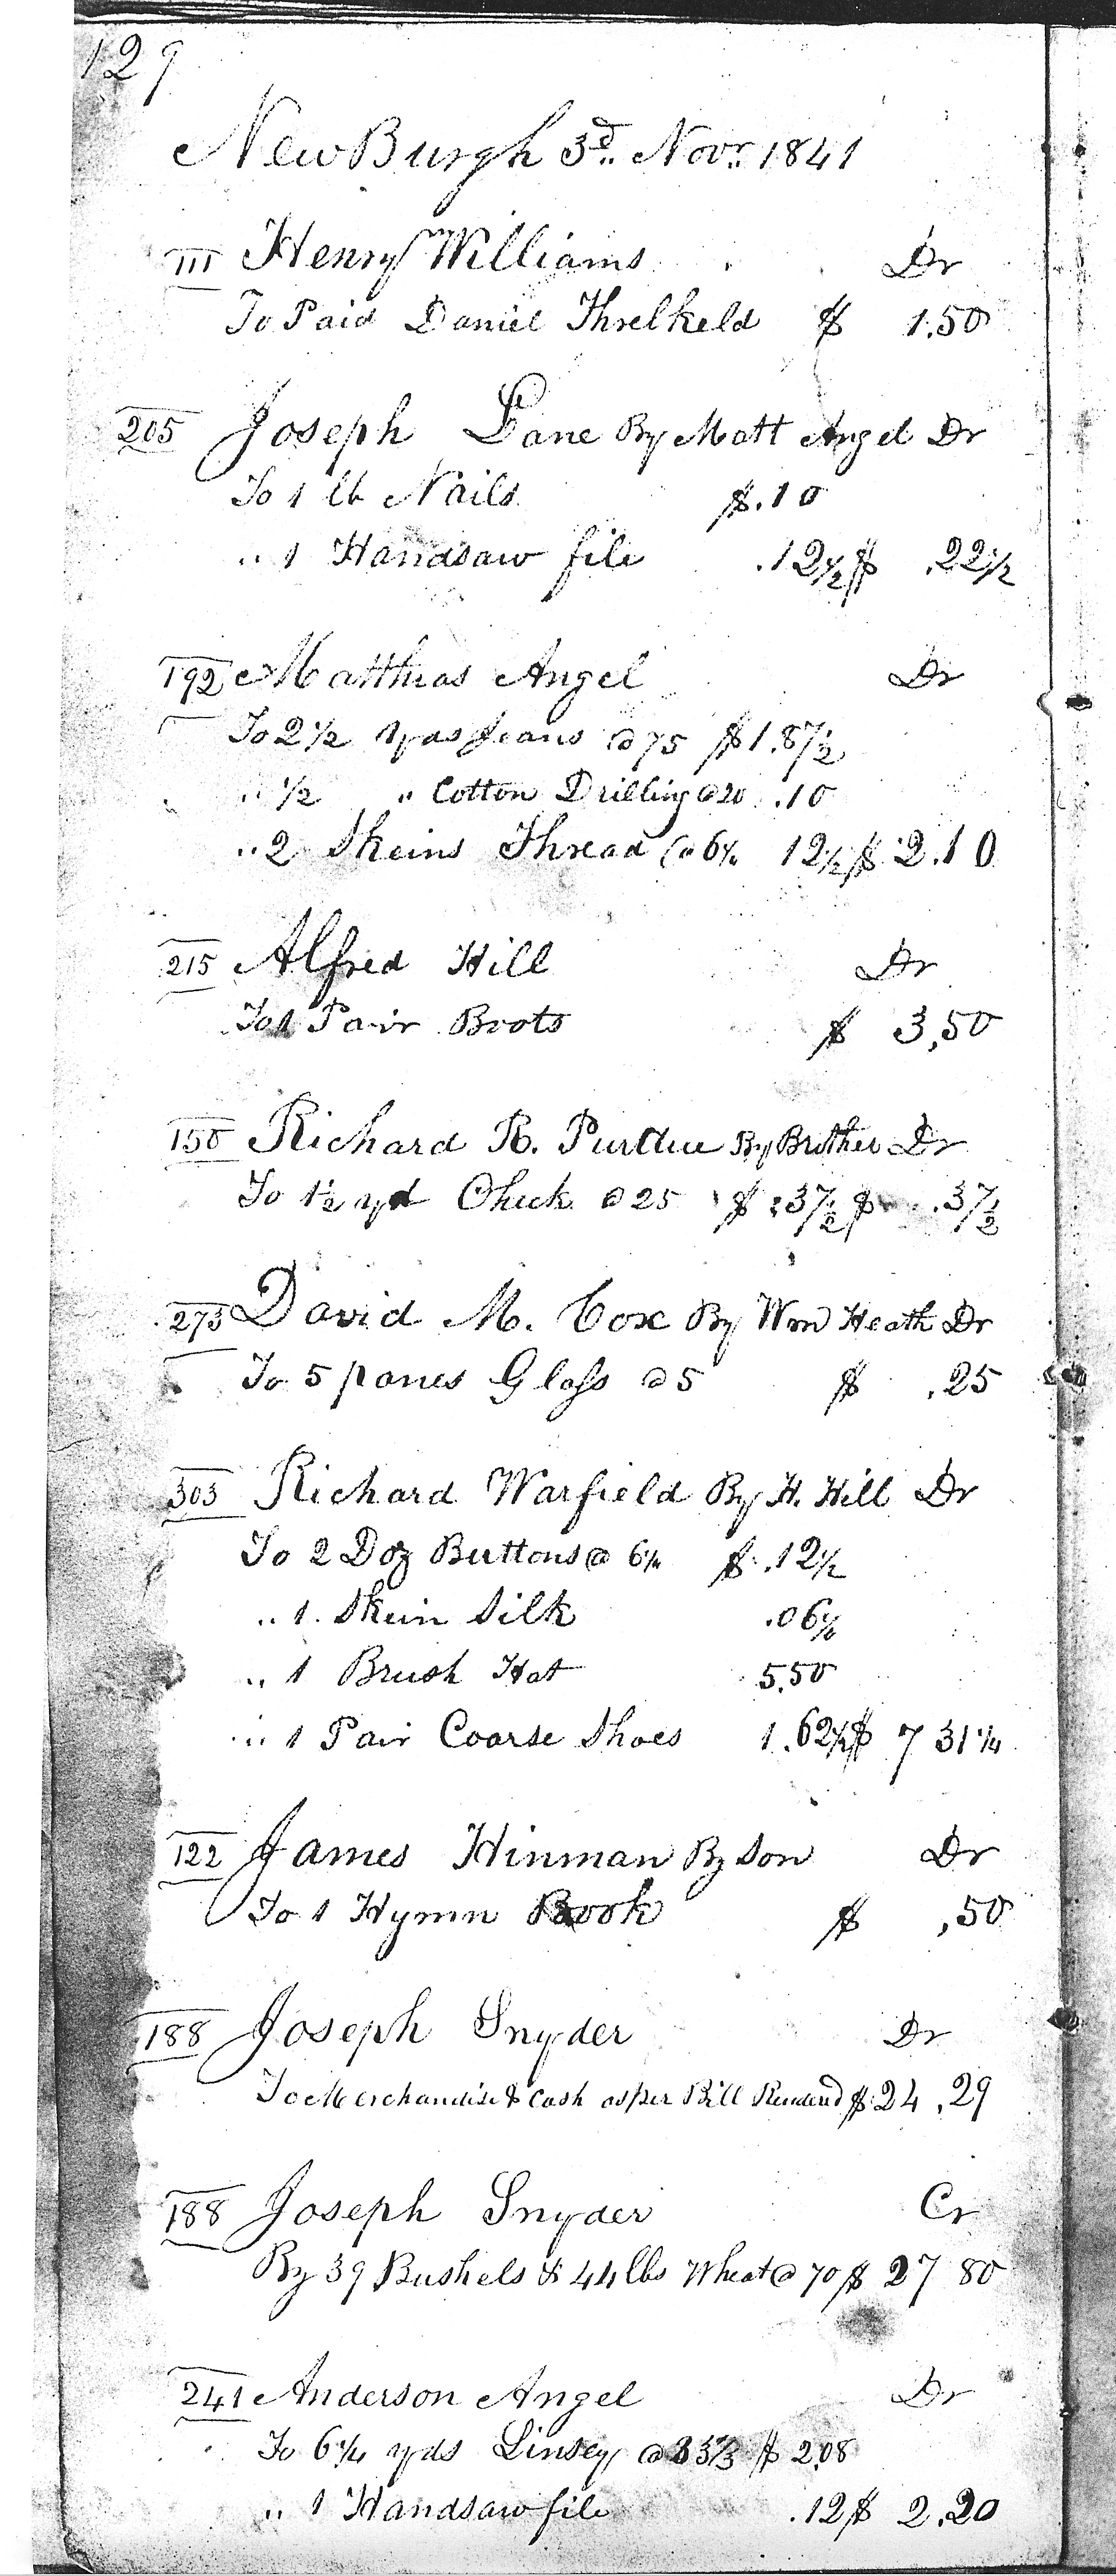 129
NewBurgh 3d. Novr. 1841
111 Henry Williams Dr
To Paid Daniel Threlkeld $ 1.50
205 Joseph Lane By Matt Angel Dr
To 1 lb Nails $.10
" 1 Handsaw file .12½ $ .22½
192 Matthias Angel Dr
To 2½ yds Jeans @ 75 $1.87½
" ½ " Cotton Drilling @ 20 .10
" 2 Skeins Thread @ 6¼ 12½ $ 2.10
215 Alfred Hill Dr
To 1 Pair Boots $ 3,50
150 Richard R. Purdue By Brother Dr
To 1½ yd Check @ 25 $ .37½ $ .37½
273 David M. Cox By Wm Heath Dr
To 5 panes Glass @ 5 $ .25
303 Richard Warfield By H. Hill Dr
To 2 Doz Buttons @ 6¼ $ .12½
" 1 Skein Silk .06¼
" 1 Brush Hat 5.50
" 1 Pair Coarse Shoes 1.62½ $ 7 31¼
122 James Hinman By Son Dr
To 1 Hymn Book $ ,50
188 Joseph Snyder Dr
To Merchandise & Cash as per Bill Rendered $ 24.29
188 Joseph Snyder Cr
By 39 Bushels & 44 lbs Wheat @ 70 $ 27 80
241 Anderson Angel Dr
To 6¼ yds Linsey @ 33⅓ $ 2.08
" 1 Handsaw file .12 $ 2.20